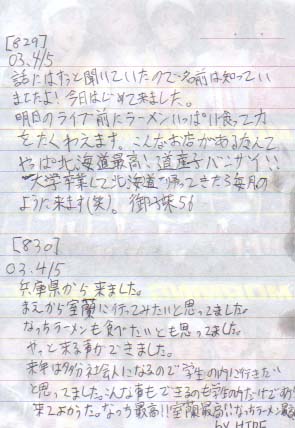 [829]
03.4/5
話にはずっと聞いていたので名前は知ってい
ましたよ!今日はじめて来ました。
明日のライブ前にラーメンいっぱい食って力
をたくわえます。こんなお店があるなんて
やっぱ北海道最高!道産子バンザイ!!
大学卒業して北海道帰ってきたら毎月の
ように来ます(笑)。御子珠56
[830]
03.4/5
兵庫県から来ました。
まえから室蘭に行ってみたいと思ってました。
なっちラーメンも食べたいとも思ってました。
やっと来る事ができました。
来年は多分社会人になるので学生の内に行きたい
と思ってました。こんな事もできるのも学生の内だけで
来てよかった。なっち最高!!室蘭最高!!なっちラーメン最
by HIDE